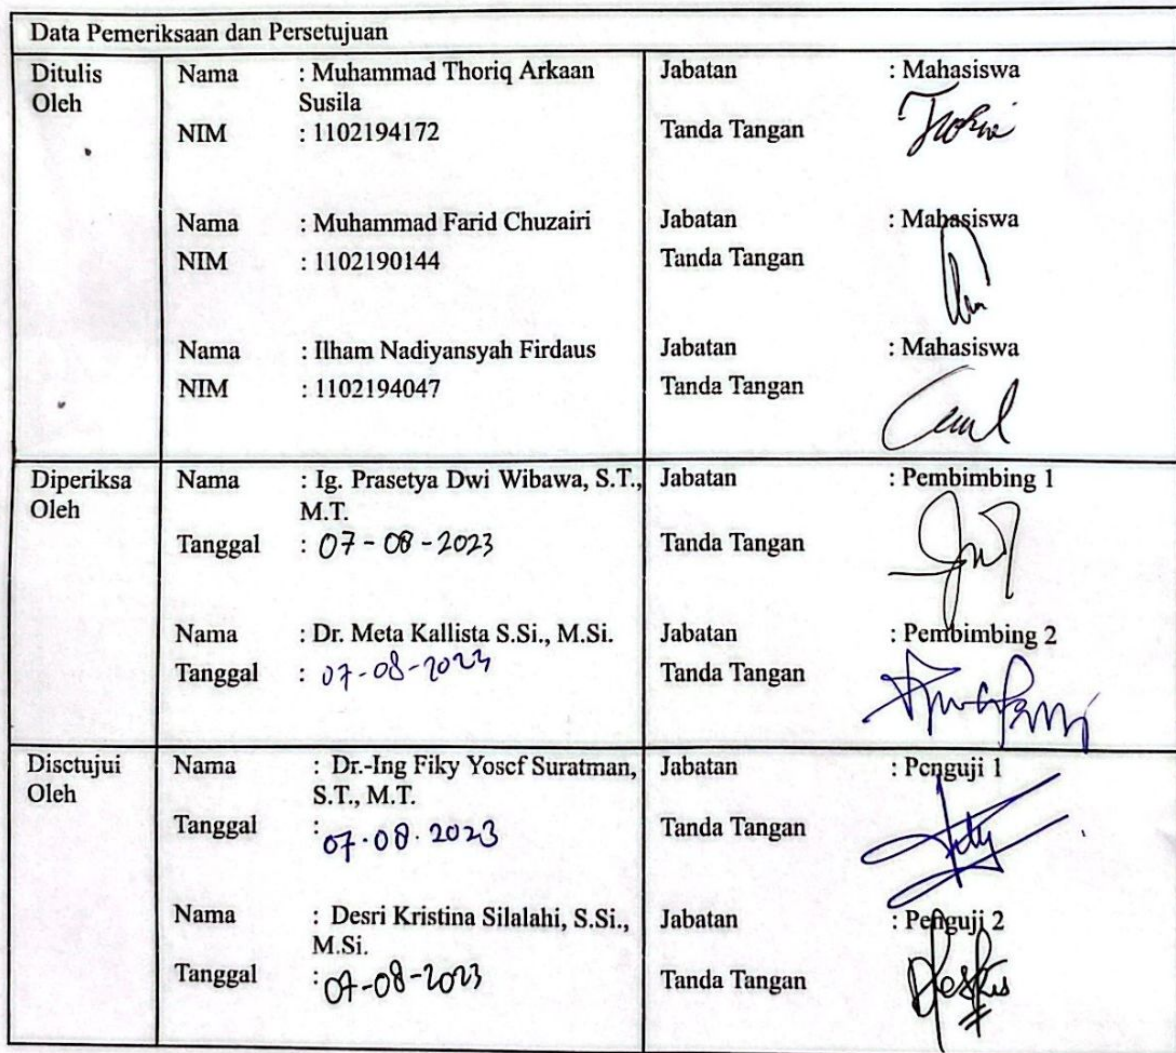 Data Pemeriksaan dan Persetujuan
Ditulis Oleh Nama : Muhammad Thoriq Arkaan Susila Jabatan : Mahasiswa
NIM : 1102194172 Tanda Tangan
Nama : Muhammad Farid Chuzairi Jabatan : Mahasiswa
NIM : 1102190144 Tanda Tangan
Nama : Ilham Nadiyansyah Firdaus Jabatan : Mahasiswa
NIM : 1102194047 Tanda Tangan
Diperiksa Oleh Nama : Ig. Prasetya Dwi Wibawa, S.T., M.T. Jabatan : Pembimbing 1
Tanggal : 07-08-2023 Tanda Tangan
Nama : Dr. Meta Kallista S.Si., M.Si. Jabatan : Pembimbing 2
Tanggal : 07-08-2023 Tanda Tangan
Disetujui Oleh Nama : Dr.-Ing Fiky Yosef Suratman, S.T., M.T. Jabatan : Penguji 1
Tanggal : 07.08.2023 Tanda Tangan
Nama : Desri Kristina Silalahi, S.Si., M.Si. Jabatan : Penguji 2
Tanggal : 07-08-2023 Tanda Tangan